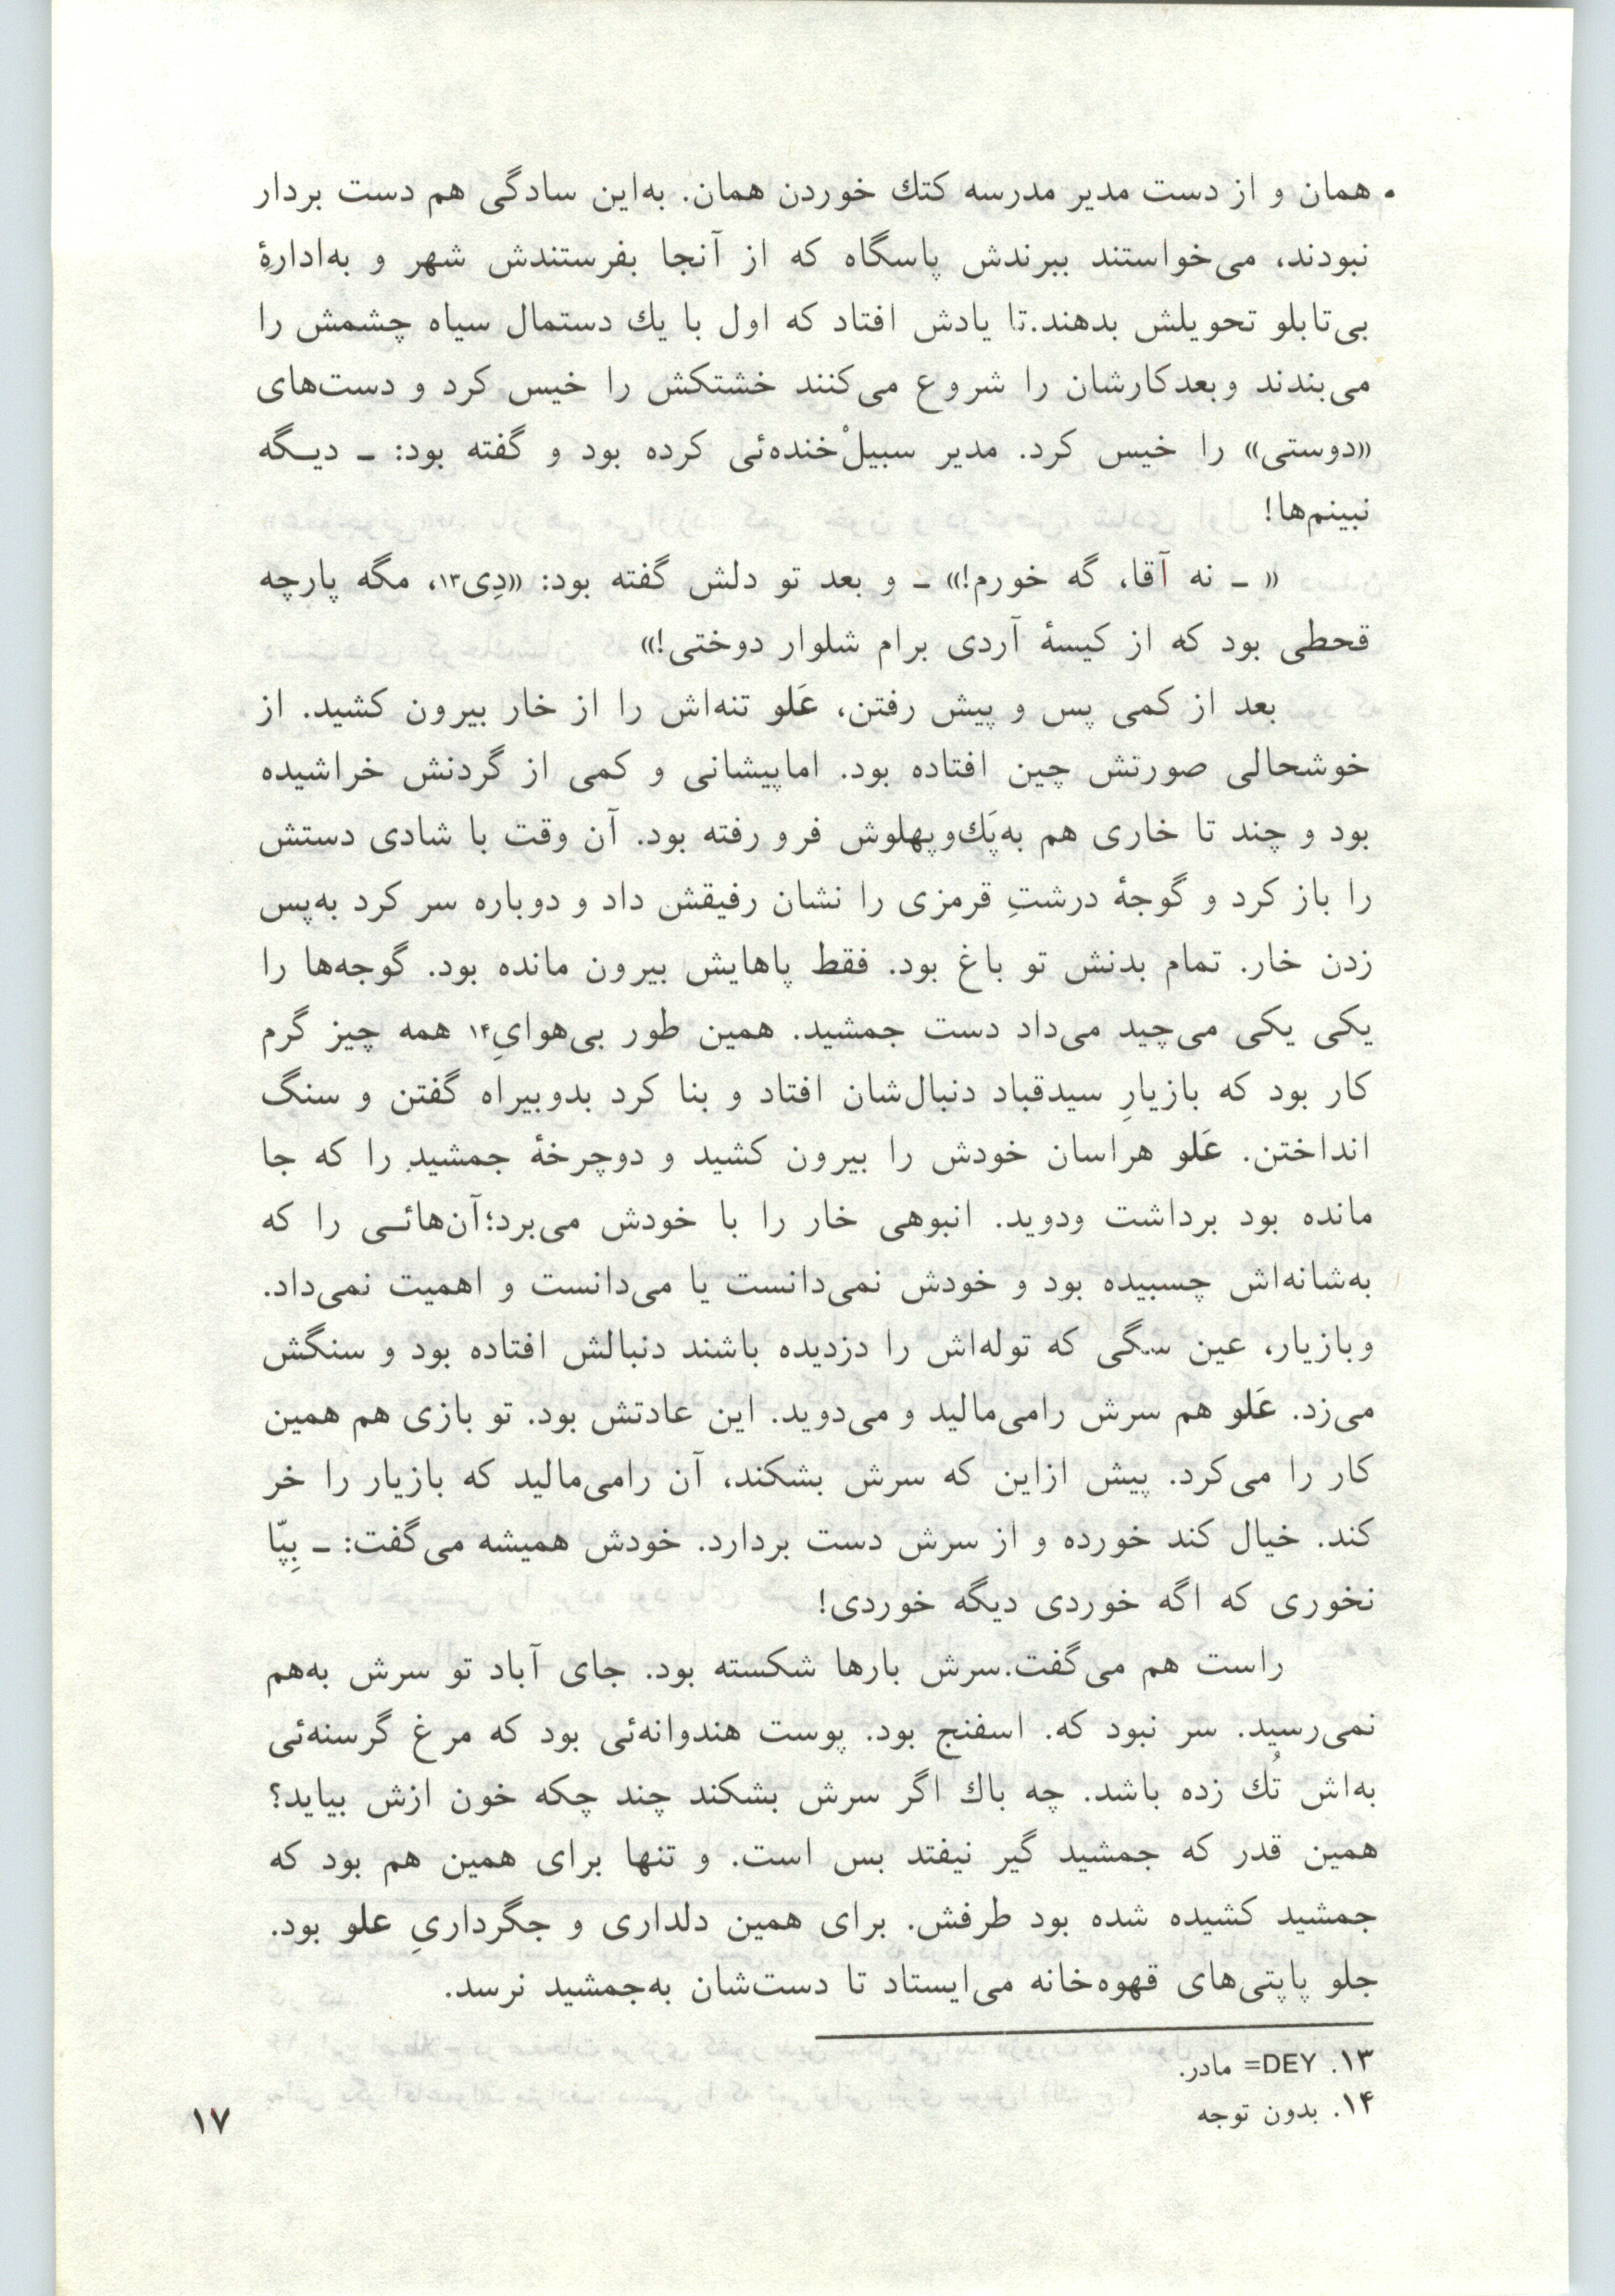 همان و از دست مدیر مدرسه کتك خوردن همان. به‌این سادگی هم دست بردار
نبودند، می‌خواستند ببرندش پاسگاه که از آنجا بفرستندش شهر و به‌ادارهٔ
بی‌تابلو تحویلش بدهند.تا یادش افتاد که اول با یك دستمال سیاه چشمش را
می‌بندند وبعدکارشان را شروع می‌کنند خشتکش را خیس کرد و دست‌های
«دوستی» را خیس کرد. مدیر سبیلْ‌خنده‌ئی کرده بود و گفته بود: ـ دیـگه
نبینم‌ها!
« ـ نه آقا، گه خورم!» ـ و بعد تو دلش گفته بود: «دِی۱۳، مگه پارچه
قحطی بود که از کیسهٔ آردی برام شلوار دوختی!»
بعد از کمی پس و پیش رفتن، عَلو تنه‌اش را از خار بیرون کشید. از
خوشحالی صورتش چین افتاده بود. اماپیشانی و کمی از گردنش خراشیده
بود و چند تا خاری هم به‌پَك‌وپهلوش فرو رفته بود. آن وقت با شادی دستش
را باز کرد و گوجهٔ درشتِ قرمزی را نشان رفیقش داد و دوباره سر کرد به‌پس
زدن خار. تمام بدنش تو باغ بود. فقط پاهایش بیرون مانده بود. گوجه‌ها را
یکی یکی می‌چید می‌داد دست جمشید. همین طور بی‌هوایِ۱۴ همه چیز گرم
کار بود که بازیارِ سیدقباد دنبال‌شان افتاد و بنا کرد بدوبیراه گفتن و سنگ
انداختن. عَلو هراسان خودش را بیرون کشید و دوچرخهٔ جمشید را که جا
مانده بود برداشت ودوید. انبوهی خار را با خودش می‌برد؛آن‌هائـی را که
به‌شانه‌اش چسبیده بود و خودش نمی‌دانست یا می‌دانست و اهمیت نمی‌داد.
وبازیار، عین سگی که توله‌اش را دزدیده باشند دنبالش افتاده بود و سنگش
می‌زد. عَلو هم سرش رامی‌مالید و می‌دوید. این عادتش بود. تو بازی هم همین
کار را می‌کرد. پیش ازاین که سرش بشکند، آن رامی‌مالید که بازیار را خر
کند. خیال کند خورده و از سرش دست بردارد. خودش همیشه می‌گفت: ـ بِپّا
نخوری که اگه خوردی دیگه خوردی!
راست هم می‌گفت.سرش بارها شکسته بود. جای آباد تو سرش به‌هم
نمی‌رسید. سر نبود که. اسفنج بود. پوست هندوانه‌ئی بود که مرغ گرسنه‌ئی
به‌اش تُك زده باشد. چه باك اگر سرش بشکند چند چکه خون ازش بیاید؟
همین قدر که جمشید گیر نیفتد بس است. و تنها برای همین هم بود که
جمشید کشیده شده بود طرفش. برای همین دلداری و جگرداریِ علو بود.
جلو پاپتی‌های قهوه‌خانه می‌ایستاد تا دست‌شان به‌جمشید نرسد.
۱۳. DEY= مادر.
۱۴. بدون توجه
۱۷